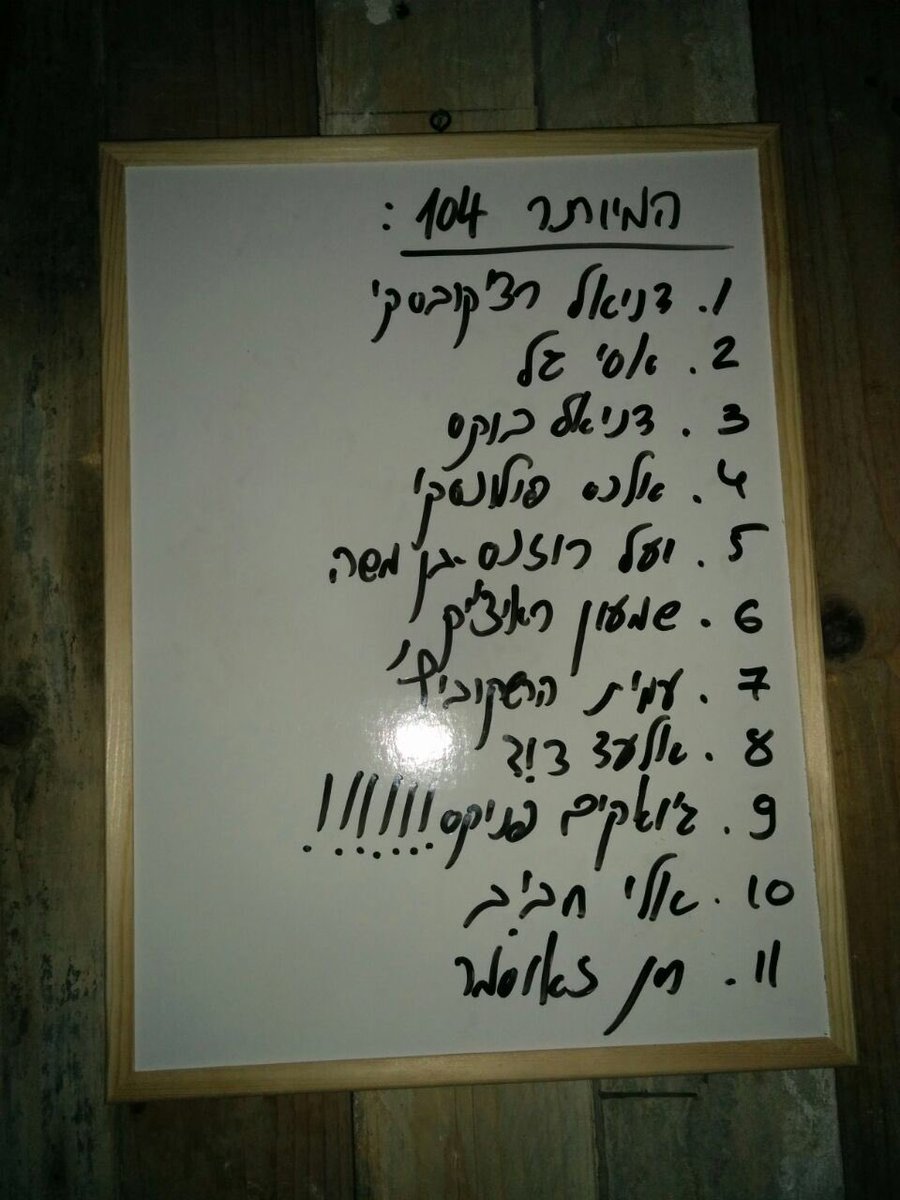 המיותר 104 :
1. דניאל רצ'קובסקי
2. אסי גל
3. דניאל בוקס
4. אלכס פולונסקי
5. יעל רוזנס-בן משה
6. שמעון ראיצ'יק
7. עמית הרשקוביץ'
8. אלעד דוד
9. ג'ואקים פניקס!!!!!!!
10. אלי חביב
11. חן זאוסמר